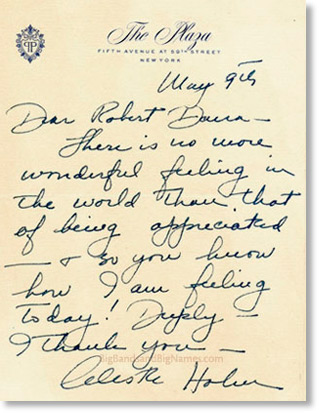 The Plaza
FIFTH AVENUE AT 59TH STREET
NEW YORK
May 9th
Dear Robert
There is no more
wonderful feeling in
the world than that
of being appreciated
— & so you know
how I am feeling
today! Deeply —
I thank you —
BigBandsandBigNames.com
Celeste Holm